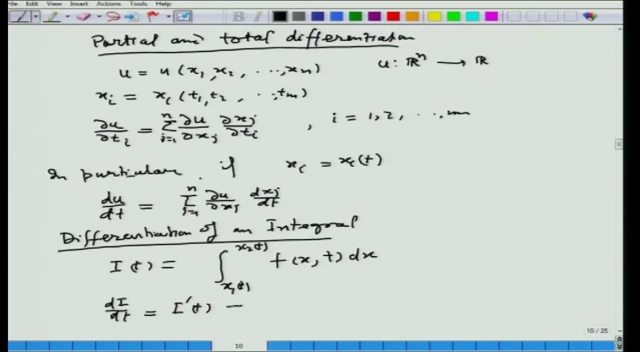 File Edit View Insert Actions Tools Help
Partial and total differentiation
u = u(x₁, x₂, ..., xₙ)    u: ℝⁿ → ℝ
xᵢ = xᵢ(t₁, t₂, ..., tₘ)
∂u/∂tᵢ = Σⱼ₌₁ⁿ ∂u/∂xⱼ ∂xⱼ/∂tᵢ , i = 1, 2, ..., m
In particular, if xᵢ = xᵢ(t)
du/dt = Σⱼ₌₁ⁿ ∂u/∂xⱼ dxⱼ/dt
Differentiation of an Integral
I(t) = ∫_{x₁(t)}^{x₂(t)} f(x, t) dx
dI/dt = I'(t) =
10 / 25
10